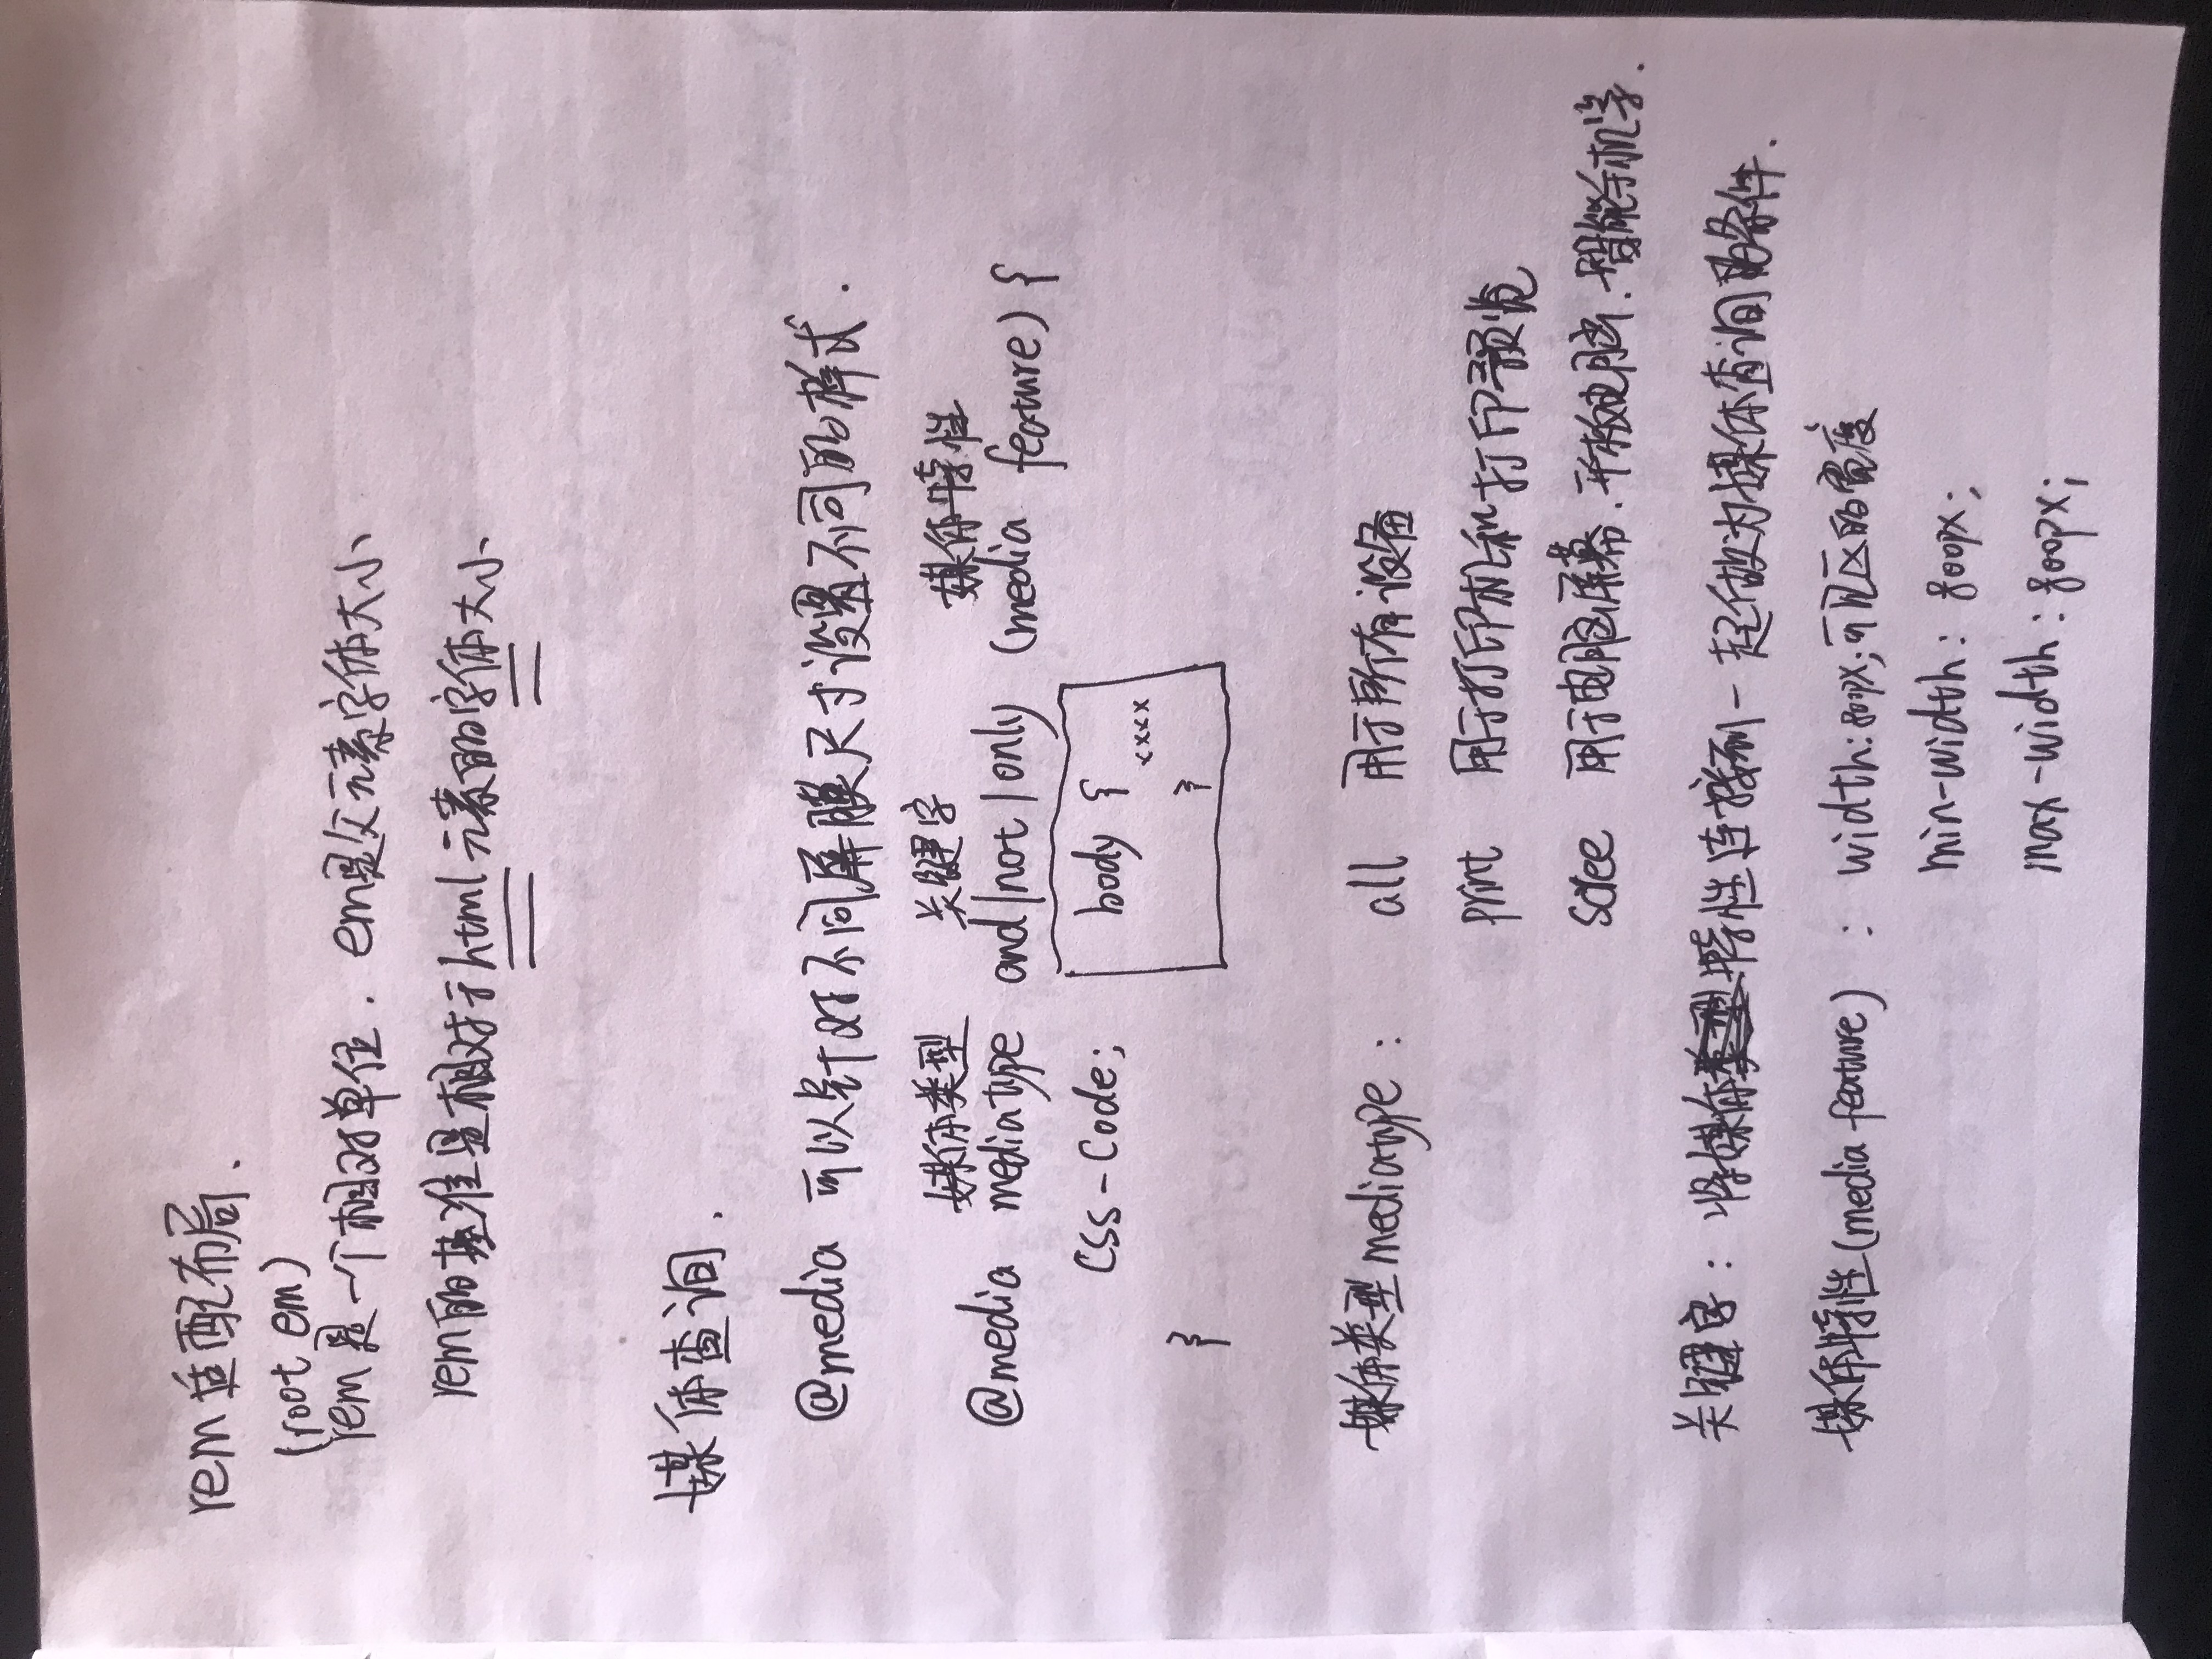 rem适配布局.
(root em)
rem是一个相对单位. em是父元素字体大小
rem的基准是相对于html元素的字体大小
媒体查询.
@media 可以针对不同屏膜尺寸设置不同的样式.
媒体类型 关键字 媒体特性
@media mediatype and|not|only (media feature) {
CSS-Code; body {
xxxx
} }
媒体类型mediatype: all 用于所有设备
print 用于打印机和打印预览
scree 用于电脑屏幕.平板电脑.智能手机等.
关键字: 将媒体类型特性连接到一起做为媒体查询的条件.
媒体特性(media feature): width:800px;可见区的宽度
min-width: 800px;
max-width: 800px;